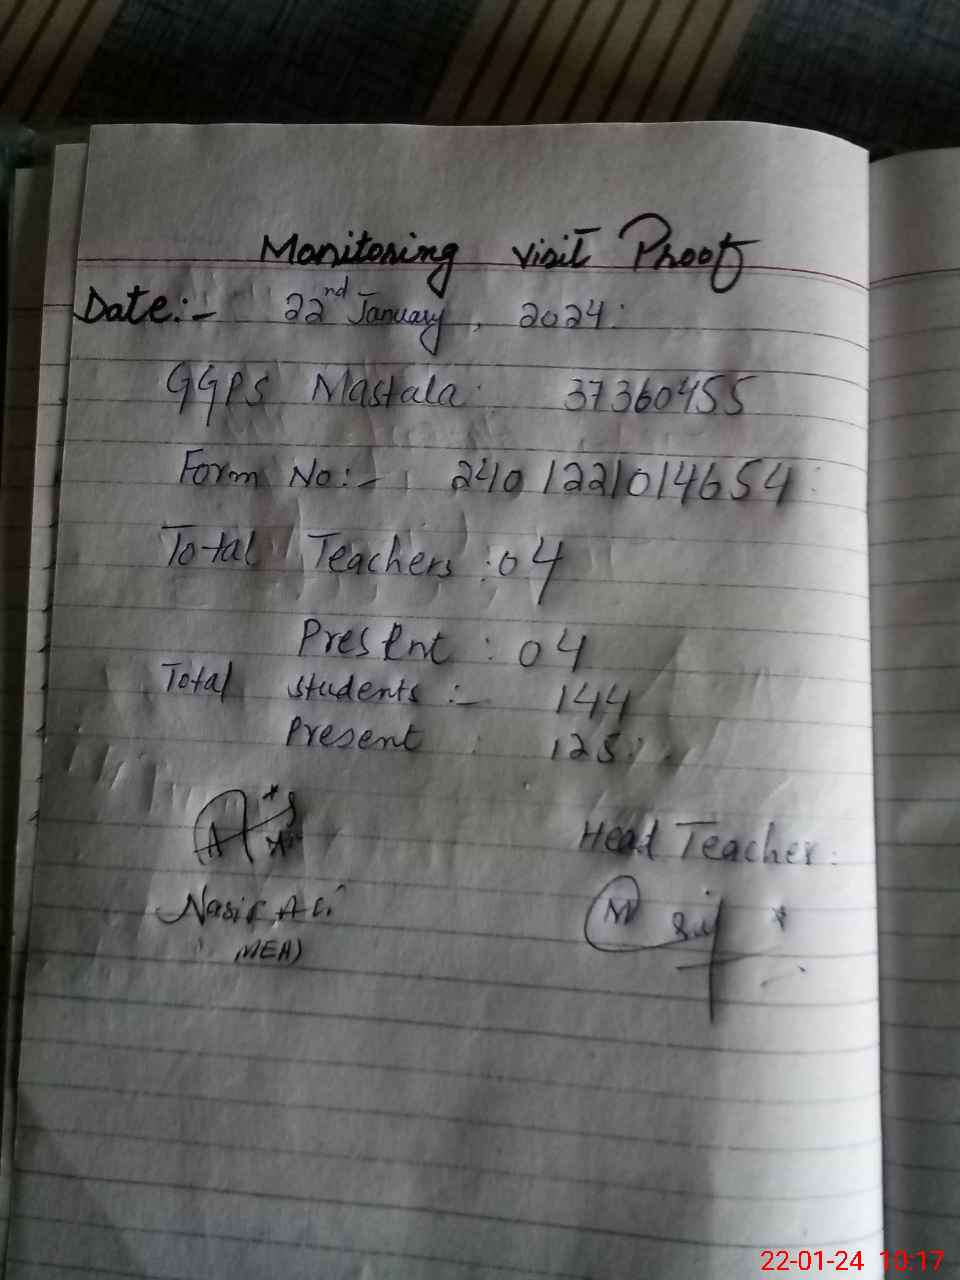 Monitoring visit Proof
Date:- 22nd January, 2024:
GGPS Mastala 37360455
Form No:- 240122101 4654
Total Teachers : 04
Present : 04
Total students :- 144
Present : 125
Head Teacher:
Nasir Ali
MEA)
22-01-24 10:17